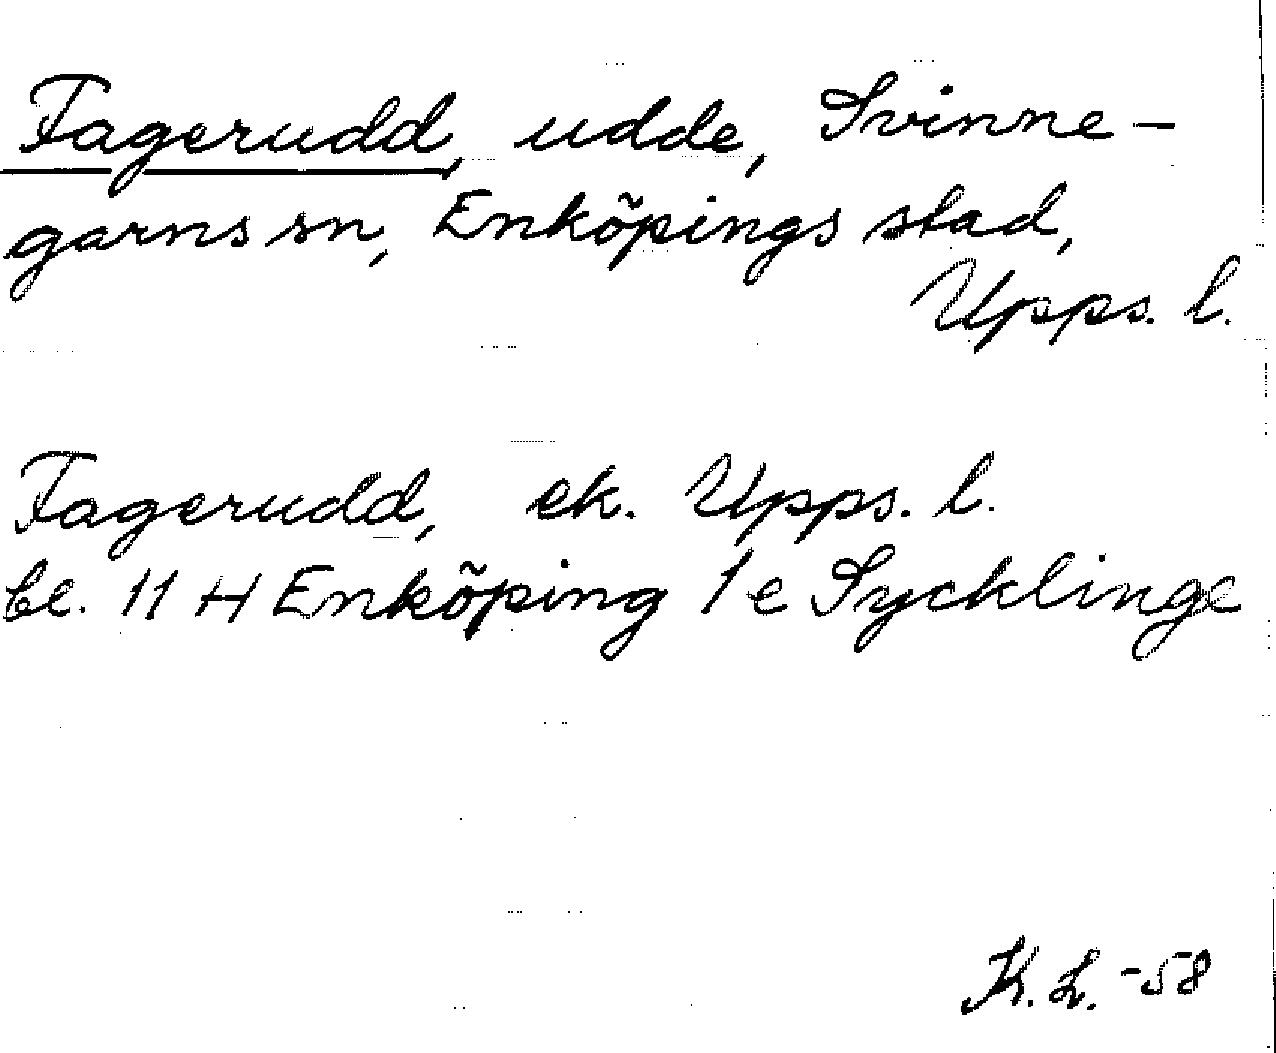 Fagerudd, udde, Svinne-
garns sn, Enköpings stad,
Upps. l.
Fagerudd, ek. Upps. l.
bl. 11 H Enköping 1 e Sycklinge
K. L. -58